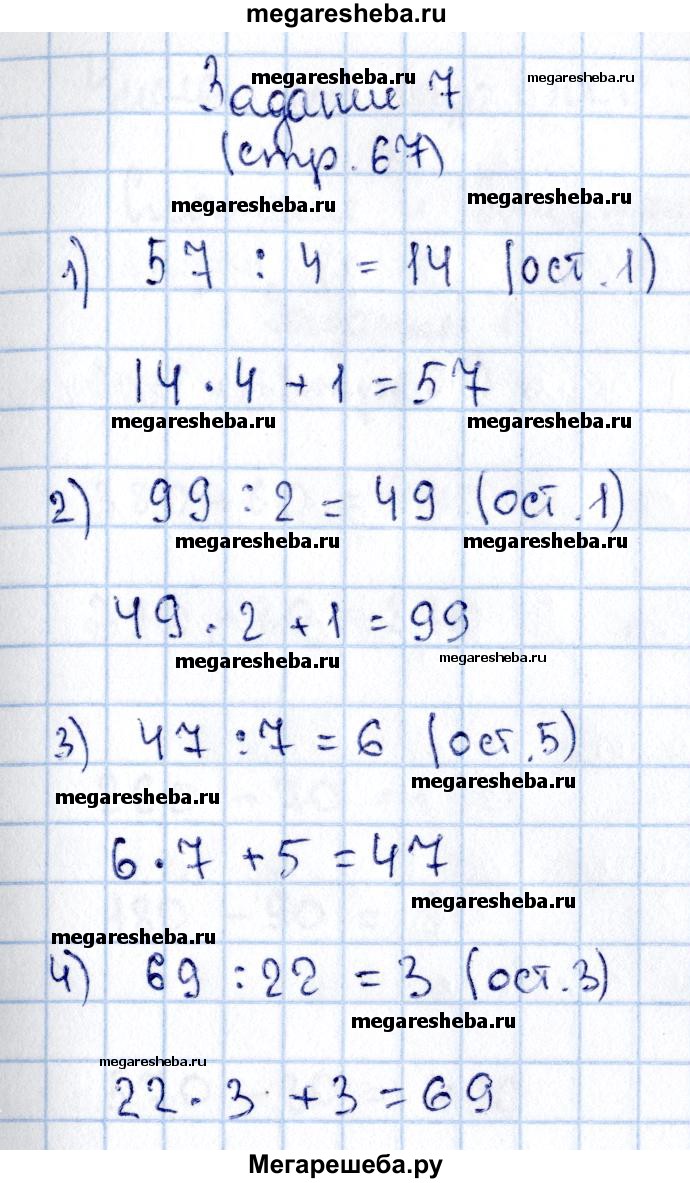 megaresheba.ru
Задание 7
megaresheba.ru megaresheba.ru
(стр. 67)
megaresheba.ru megaresheba.ru
1) 57 : 4 = 14 (ост. 1)
14 · 4 + 1 = 57
megaresheba.ru megaresheba.ru
2) 99 : 2 = 49 (ост. 1)
megaresheba.ru megaresheba.ru
49 · 2 + 1 = 99
megaresheba.ru megaresheba.ru
3) 47 : 7 = 6 (ост. 5)
megaresheba.ru megaresheba.ru
6 · 7 + 5 = 47
megaresheba.ru
megaresheba.ru
4) 69 : 22 = 3 (ост. 3)
megaresheba.ru
megaresheba.ru
22 · 3 + 3 = 69
Мегарешеба.ру